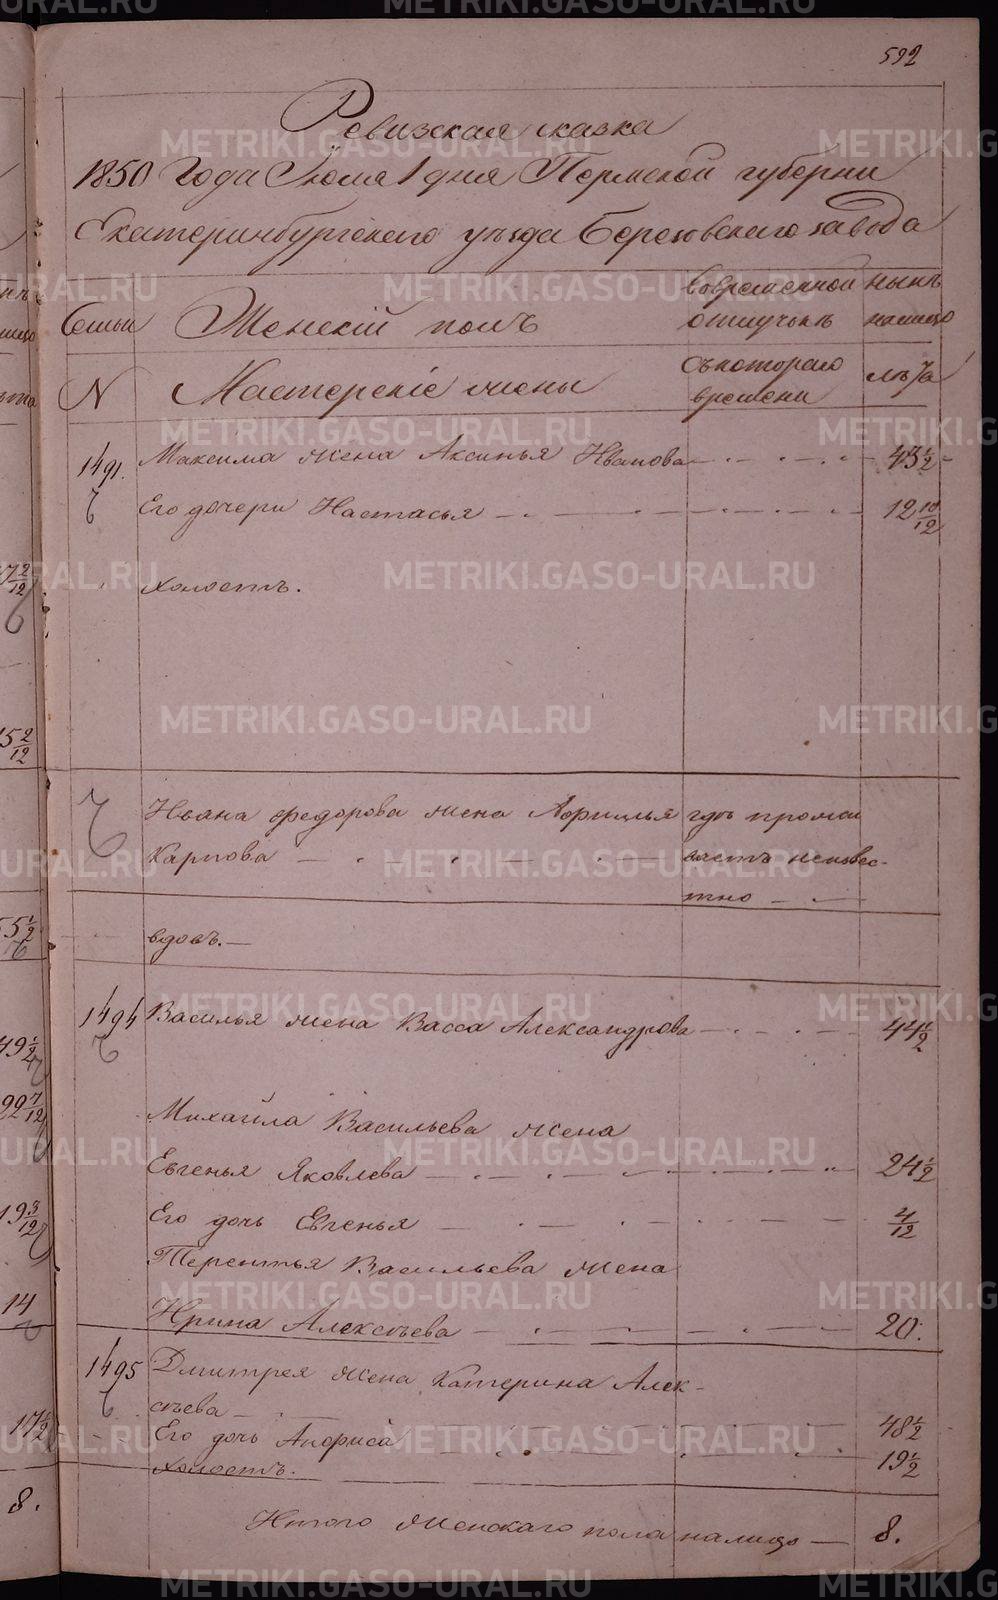 592
Ревизская сказка
1850 Года Июля 1 дня Пермской губернии
Екатеринбургского уѣзда Березовского завода
Семьи
Женскій полъ
во временной отлучькѣ
нынѣ налицо
N
Мастерскіе жены
съ котораго времени
лѣта
1491.
Максима жена Аксинья Иванова
43 1/2
Его дочери Настасья
12 10/12
холостъ.
Ивана Федорова жена
гдѣ прожи
Карпова
ваетъ неизвес-
тно
вдовъ.
1494
Василья жена Васса Александрова
44 1/2
Михайла Васильева жена
Евгенья Яковлева
24 1/2
Его дочь Евгенья
4/12
Терентья Васильева жена
Ирина Алексѣева
20.
1495
Дмитрея жена Катерина Алек-
сѣева
48 1/2
Его дочь
19 1/2
холостъ.
Итого женскаго пола налицо
8.
7 2/12
5 2/12
5 1/2
49 1/2
22 7/12
19 3/12
14
17 1/2
8.
METRIKI.GASO-URAL.RU